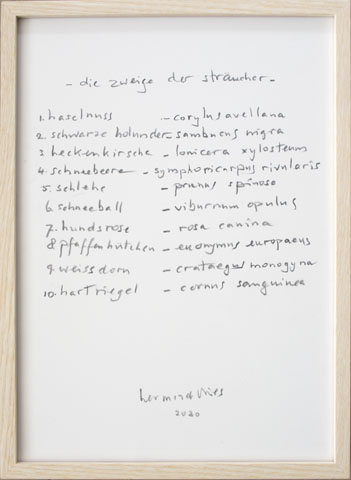 - die zweige der sträucher -
1. haselnuss - corylus avellana
2. schwarze holunder - sambucus nigra
3. heckenkirsche - lonicera xylosteum
4. schneebeere - symphoricarpus rivularis
5. schlehe - prunus spinosa
6. schneeball - viburnum opulus
7. hundsrose - rosa canina
8. pfaffenhütchen - euonymus europaeus
9. weissdorn - crataegus monogyna
10. hartriegel - cornus sanguinea
herman de vries
2020